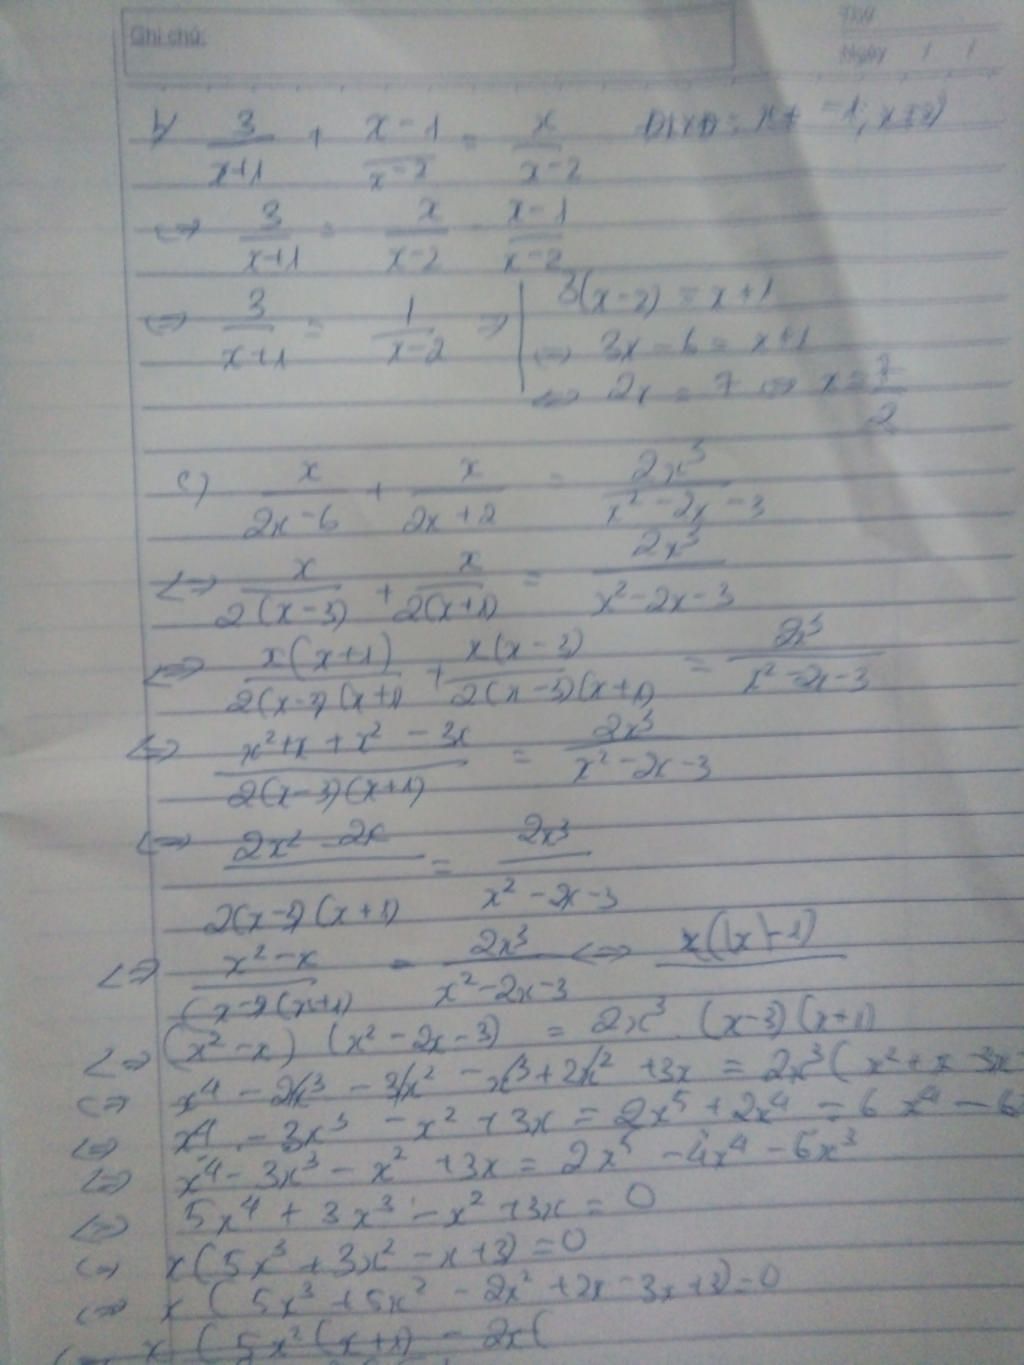 Ghi chú:
Thứ
Ngày / /
b) 3/(x+1) + (x-1)/(x-2) = x/(x-2) ĐKXĐ: x ≠ -1; x ≠ 2
<=> 3/(x+1) = x/(x-2) - (x-1)/(x-2)
<=> 3/(x+1) = 1/(x-2) => | 3(x-2) = x+1
<=> 3x - 6 = x+1
<=> 2x = 7 <=> x = 7/2
c) x/(2x-6) + x/(2x+2) = 2x³/(x²-2x-3)
<=> x/(2(x-3)) + x/(2(x+1)) = 2x³/(x²-2x-3)
<=> x(x+1)/(2(x-3)(x+1)) + x(x-3)/(2(x-3)(x+1)) = 2x³/(x²-2x-3)
<=> (x²+x+x²-3x)/(2(x-3)(x+1)) = 2x³/(x²-2x-3)
<=> (2x²-2x)/(2(x-3)(x+1)) = 2x³/(x²-2x-3)
<=> (x²-x)/((x-3)(x+1)) = 2x³/(x²-2x-3) <=> x(x-1)
<=> (x²-x)(x²-2x-3) = 2x³.(x-3)(x+1)
<=> x⁴ - 2x³ - 3x² - x³ + 2x² + 3x = 2x³(x²+x-3x-
<=> x⁴ - 3x³ - x² + 3x = 2x⁵ + 2x⁴ - 6x⁴ - 6
<=> x⁴ - 3x³ - x² + 3x = 2x⁵ - 4x⁴ - 6x³
<=> 5x⁴ + 3x³ - x² + 3x = 0
<=> x(5x³ + 3x² - x + 3) = 0
<=> x(5x³ + 5x² - 2x² + 2x - 3x + 3) = 0
<=> x(5x²(x+1) - 2x(